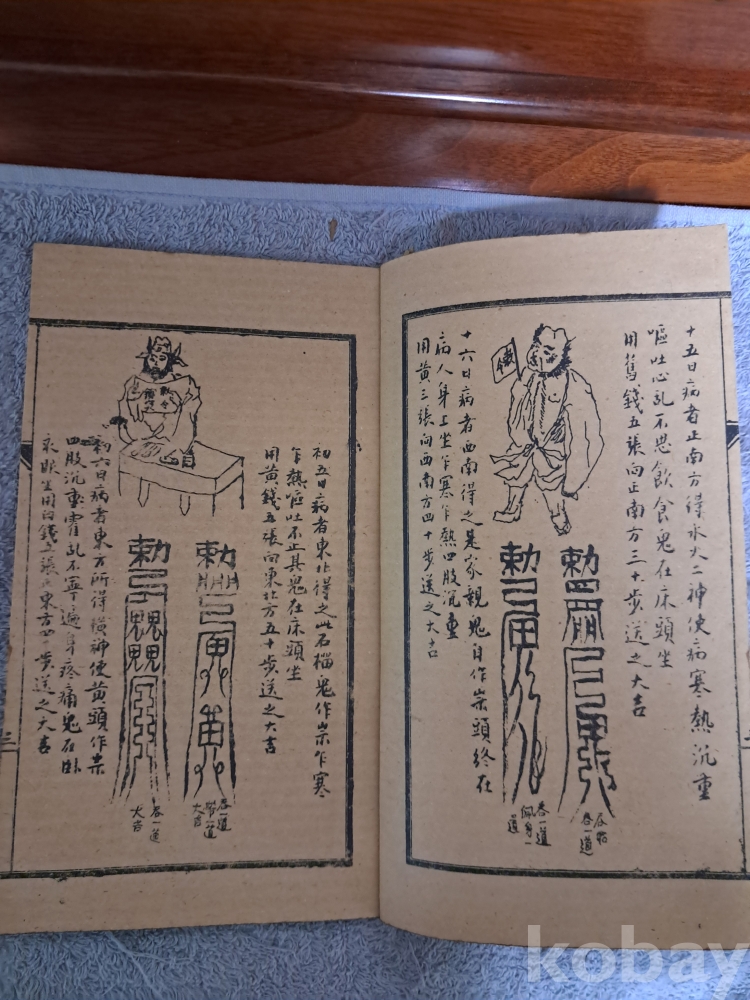 十五日病者正南方得水火二神使病寒熱沉重
嘔吐心乱不思飲食鬼在床頭坐
用舊錢五張向正南方三十步送之大吉
十六日病者西南得之是家親鬼自作祟頭終在
病人身上坐乍寒乍熱四肢沉重
用黄三張向西南方四十步送之大吉
勅
勅
吞一道
吞一道
佩身一道
初五日病者東北得之此石榴鬼作祟乍寒
乍熱嘔吐不止其鬼在床頭坐
用黄錢五張向東北方五十步送之大吉
勅
勅
吞一道
帶一道
大吉
吞一道
大吉
初六日病者東方所得橫神使黄頭作祟
四肢沉重霍乱不寧遍身疼痛鬼在卧
床坐用白錢五張正東方四十步送之大吉
kobay